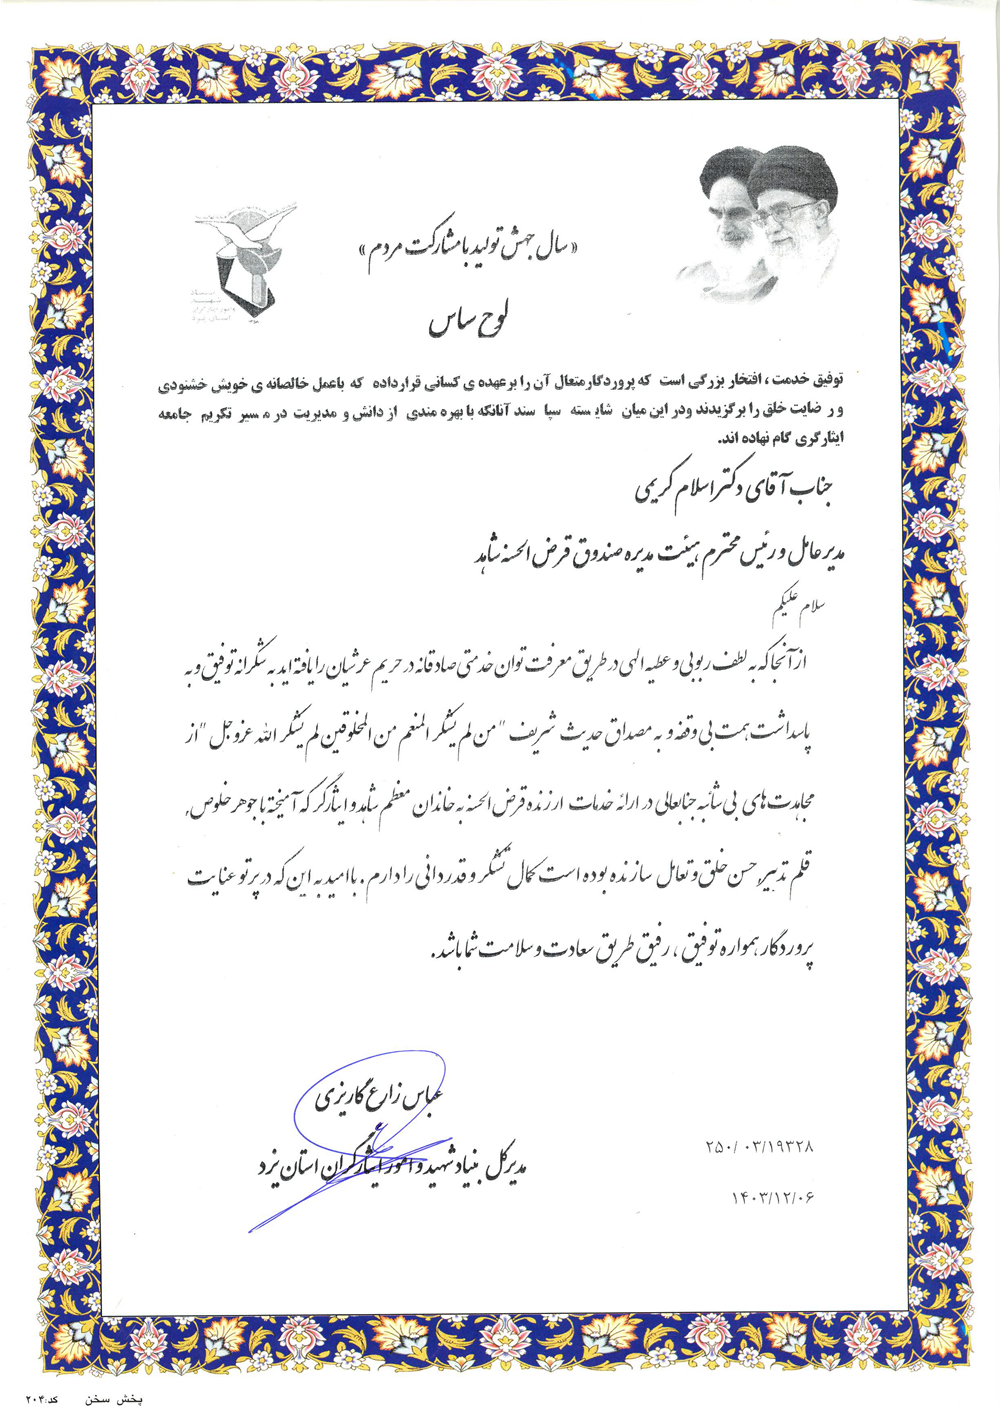 «سال جهش تولید با مشارکت مردم»
لوح سپاس
توفیق خدمت ، افتخار بزرگی است که پروردگارمتعال آن را برعهده ی کسانی قرارداده که باعمل خالصانه ی خویش خشنودی
و رضایت خلق را برگزیدند ودر این میان شایسته سپاسند آنانکه با بهره مندی از دانش و مدیریت در مسیر تکریم جامعه
ایثارگری گام نهاده اند.
جناب آقای دکتر اسلام کریمی
مدیرعامل و رئیس محترم هیئت مدیره صندوق قرض الحسنه شاهد
سلام علیکم
از آنجا که به لطف ربوبی و عطیه الهی در طریق معرفت توان خدمتی صادقانه در حریم عرشیان را یافته اید به شکرانه توفیق و به
پاسداشت همت بی وقفه و به مصداق حدیث شریف "من لم یشکر المنعم من المخلوقین لم یشکر الله عزوجل" از
مجاهدت های بی شائبه جنابعالی در ارائه خدمات ارزنده قرض الحسنه به خاندان معظم شاهد و ایثارگر که آمیخته با جوهر خلوص,
قلم تدبیر, حسن خلق و تعامل سازنده بوده است کمال تشکر و قدردانی را دارم. با امید به این که در پرتو عنایت
پروردگار همواره توفیق ، رفیق طریق سعادت و سلامت شما باشد.
عباس زارع گاریزی
مدیرکل بنیاد شهید و امور ایثارگران استان یزد
۲۵۰/۰۳/۱۹۳۲۸
۱۴۰۳/۱۲/۰۶
پخش سخن کد:۲۰۴